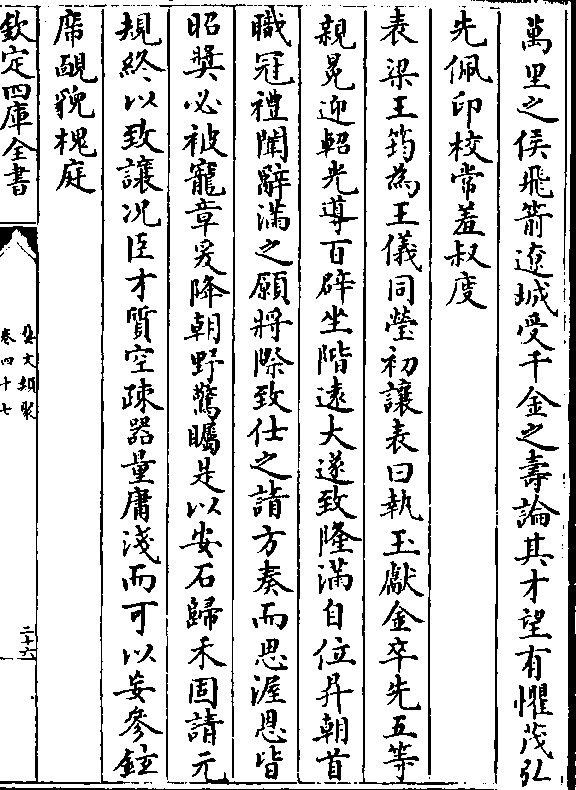 萬里之侯飛箭遼城受千金之壽論其才望有懼茂弘
先佩印校常羞叔度
表梁王筠為王儀同瑩初讓表曰執玉獻金卒先五等
親冕迎軺光導百辟坐階遠大遂致隆滿自位昇朝首
職冠禮闈辭滿之願將除致仕之請方奏而思渥恩皆
昭奬必被寵章爰降朝野驚矚是以安石歸禾固請元
規終以致讓况臣才質空疎器量庸淺而可以妄參鉉
席覥貌槐庭
欽定四庫全書
藝文類聚
卷四十七
二十六